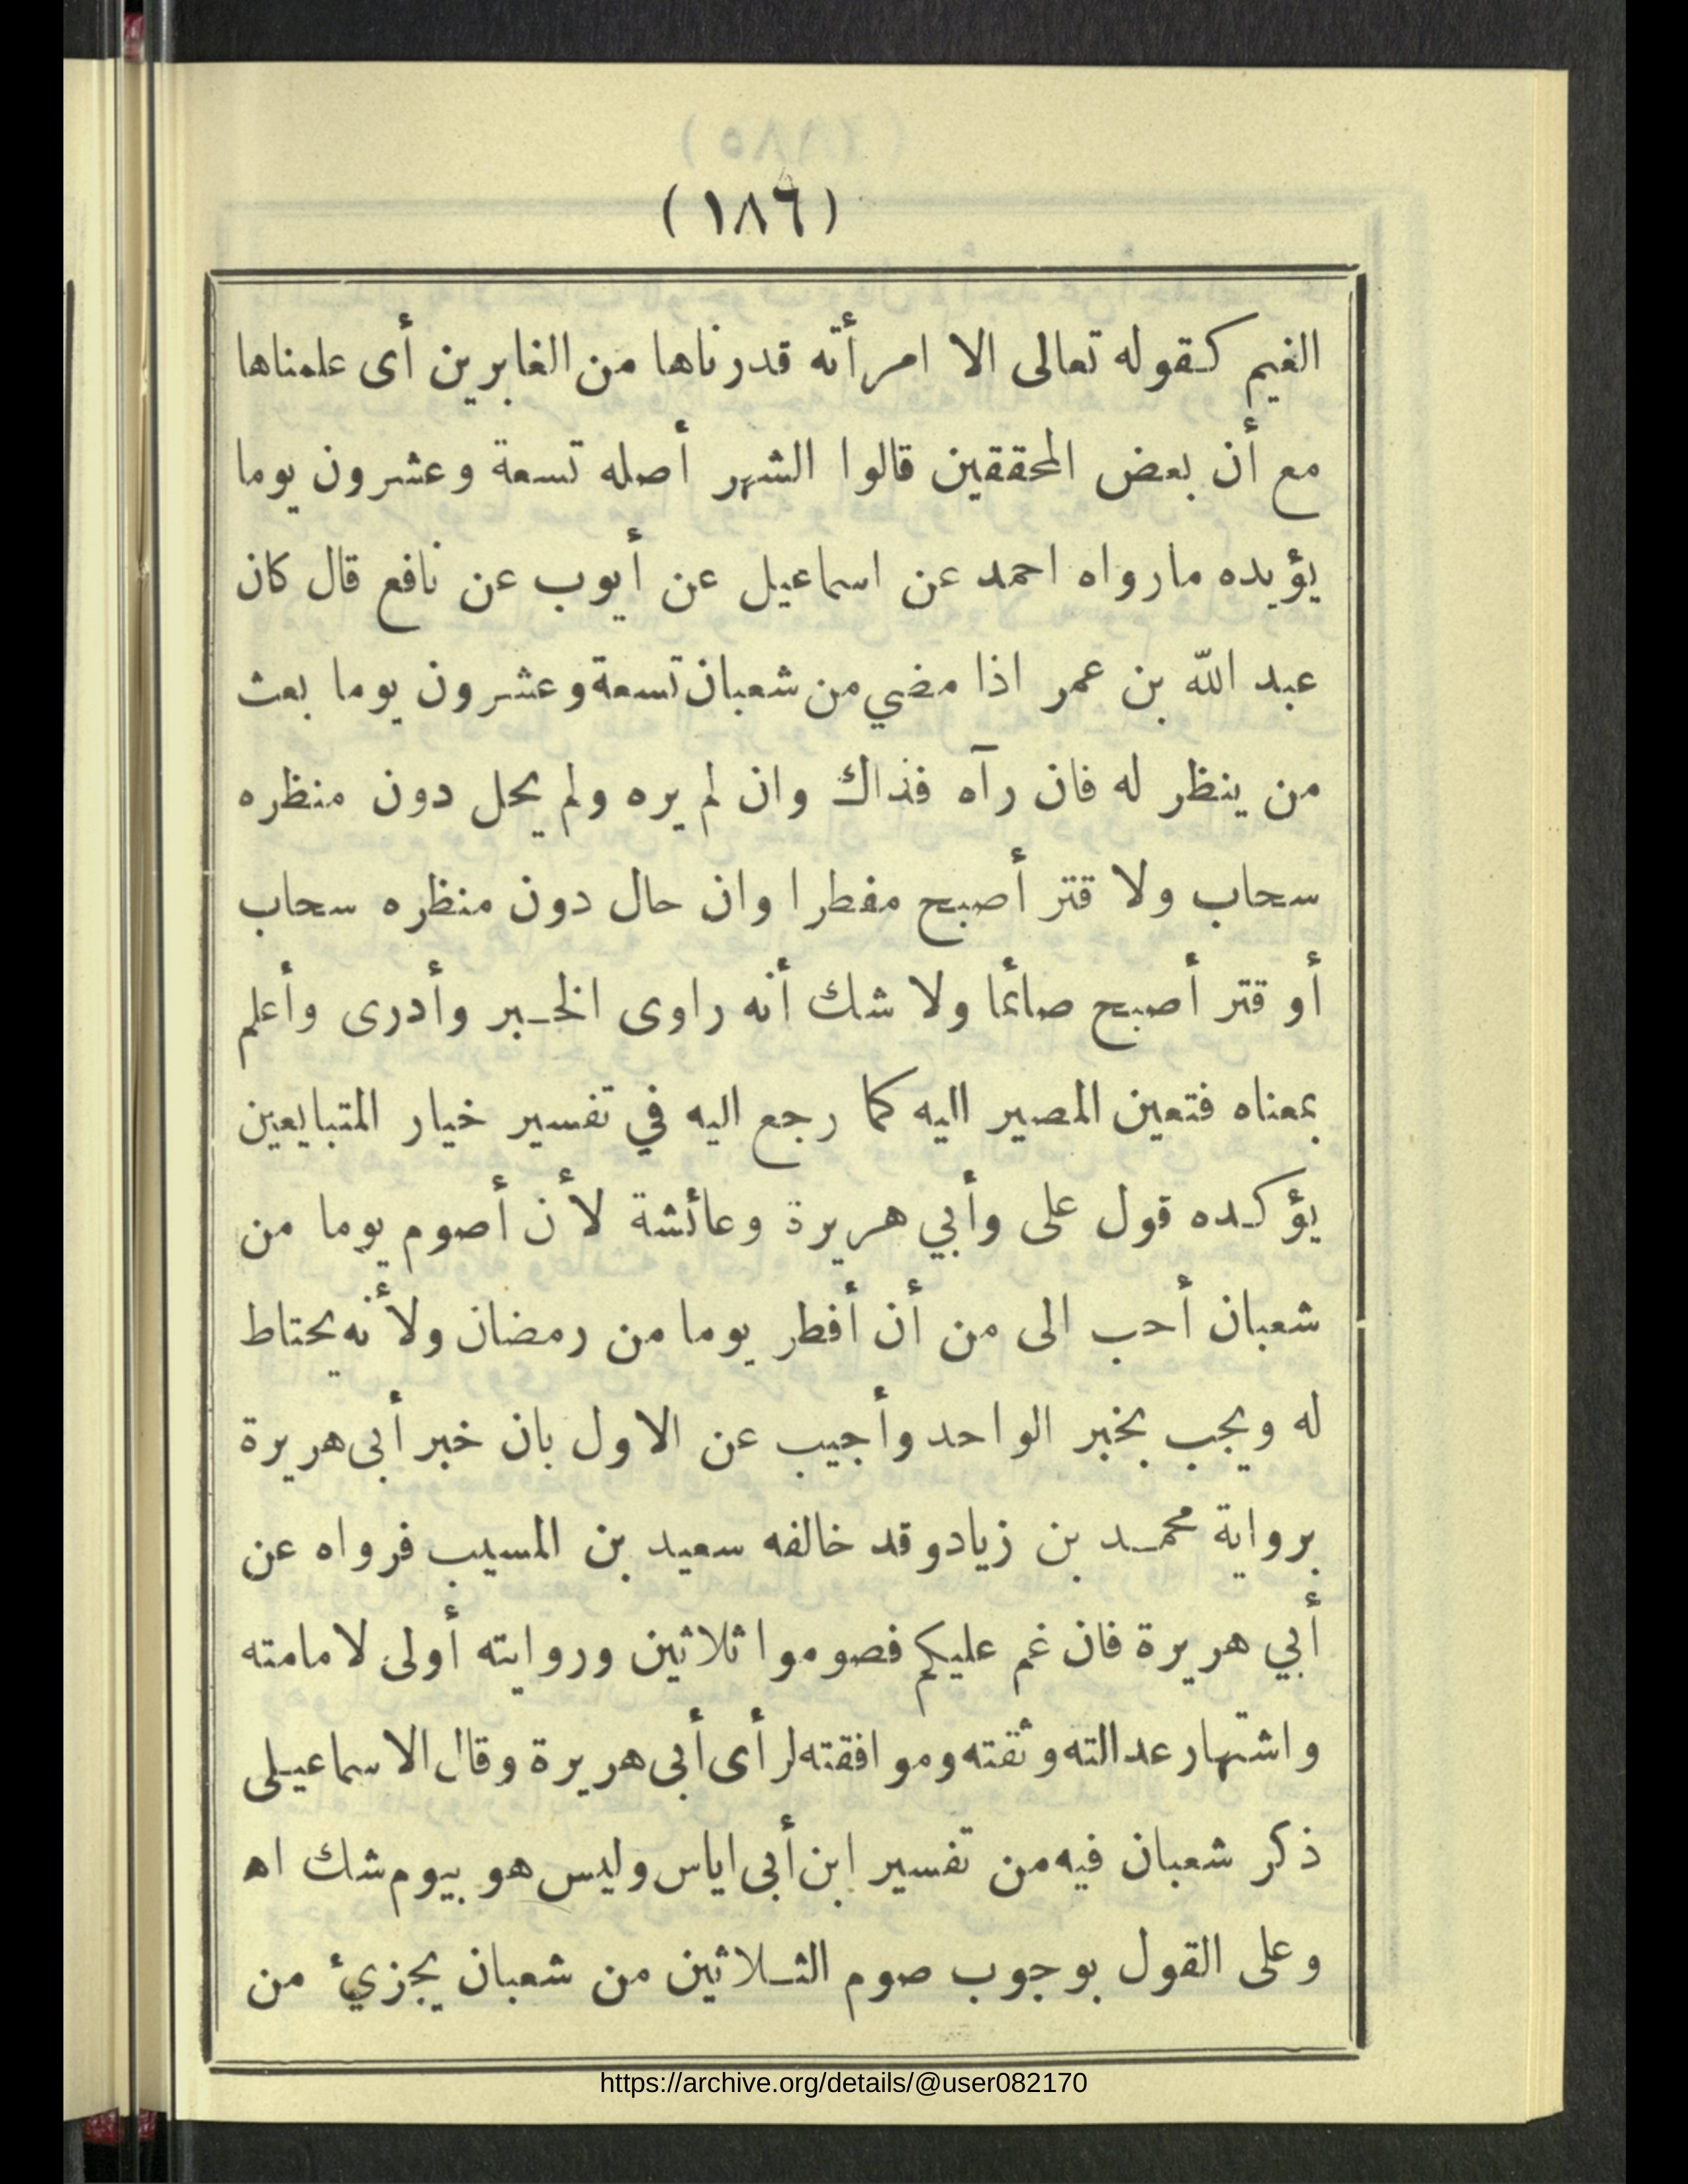 (١٨٦)
الغيم كقوله تعالى الا امرأته قدرناها من الغابرين أى علمناها
مع أن بعض المحققين قالوا الشهر أصله تسعة وعشرون يوما
يؤيده مارواه احمد عن اسماعيل عن أيوب عن نافع قال كان
عبد الله بن عمر اذا مضي من شعبان تسعة وعشرون يوما بعث
من ينظر له فان رآه فذاك وان لم يره ولم يحل دون منظره
سحاب ولا قتر أصبح مفطرا وان حال دون منظره سحاب
أو قتر أصبح صائما ولا شك أنه راوى الخبر وأدرى وأعلم
بمعناه فتعين المصير اليه كما رجع اليه في تفسير خيار المتبايعين
يؤكده قول على وأبي هريرة وعائشة لأن أصوم يوما من
شعبان أحب الى من أن أفطر يوما من رمضان ولأنه يحتاط
له ويجب بخبر الواحد وأجيب عن الاول بان خبر أبى هريرة
برواية محمد بن زياد وقد خالفه سعيد بن المسيب فرواه عن
أبي هريرة فان غم عليكم فصوموا ثلاثين وروايته أولى لامامته
واشتهار عدالته وثقته وموافقته لرأى أبى هريرة وقال الاسماعيلى
ذكر شعبان فيه من تفسير ابن أبى اياس وليس هو بيوم شك اه
وعلى القول بوجوب صوم الثلاثين من شعبان يجزيء من
https://archive.org/details/@user082170